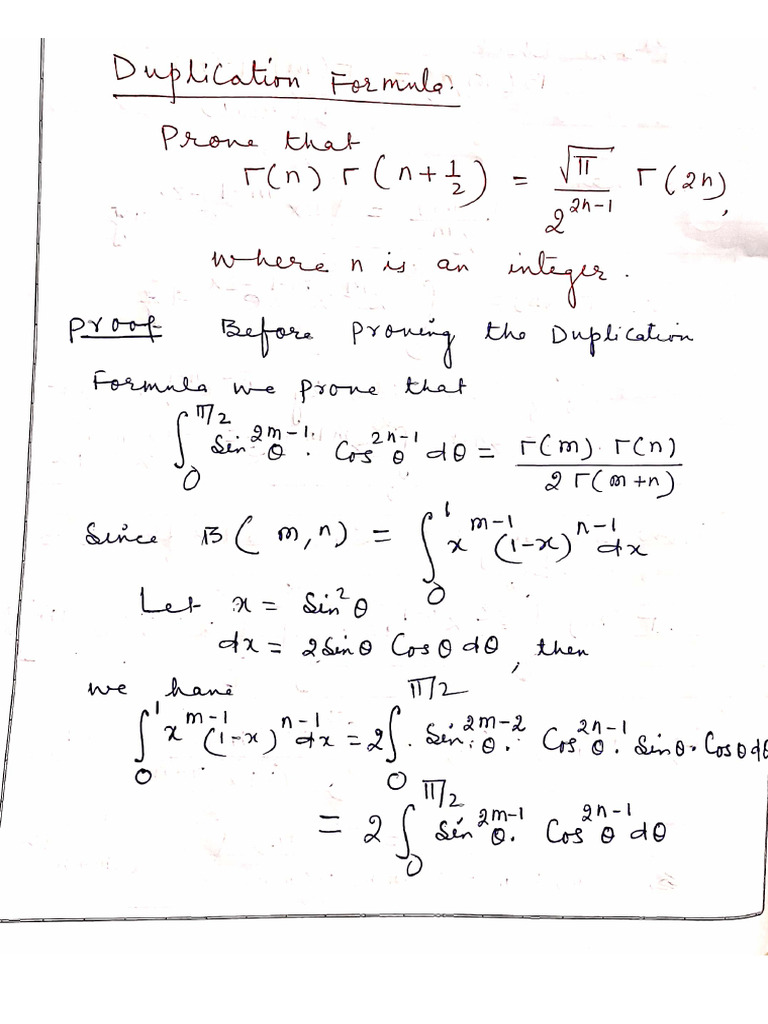 Duplication Formula.
Prove that
Γ(n) Γ(n+1/2) = √π / 2^{2n-1} Γ(2n),
where n is an integer.
Proof Before proving the Duplication
Formula we prove that
∫_0^{π/2} Sin^{2m-1}θ. Cos^{2n-1}θ dθ = Γ(m). Γ(n) / 2Γ(m+n)
Since B(m,n) = ∫_0^1 x^{m-1} (1-x)^{n-1} dx
Let x = Sin²θ
dx = 2Sinθ Cosθ dθ, then
we have
∫_0^1 x^{m-1} (1-x)^{n-1} dx = 2∫_0^{π/2} Sin^{2m-2}θ. Cos^{2n-1}θ. Sinθ. Cosθ dθ
= 2∫_0^{π/2} Sin^{2m-1}θ. Cos^{2n-1}θ dθ